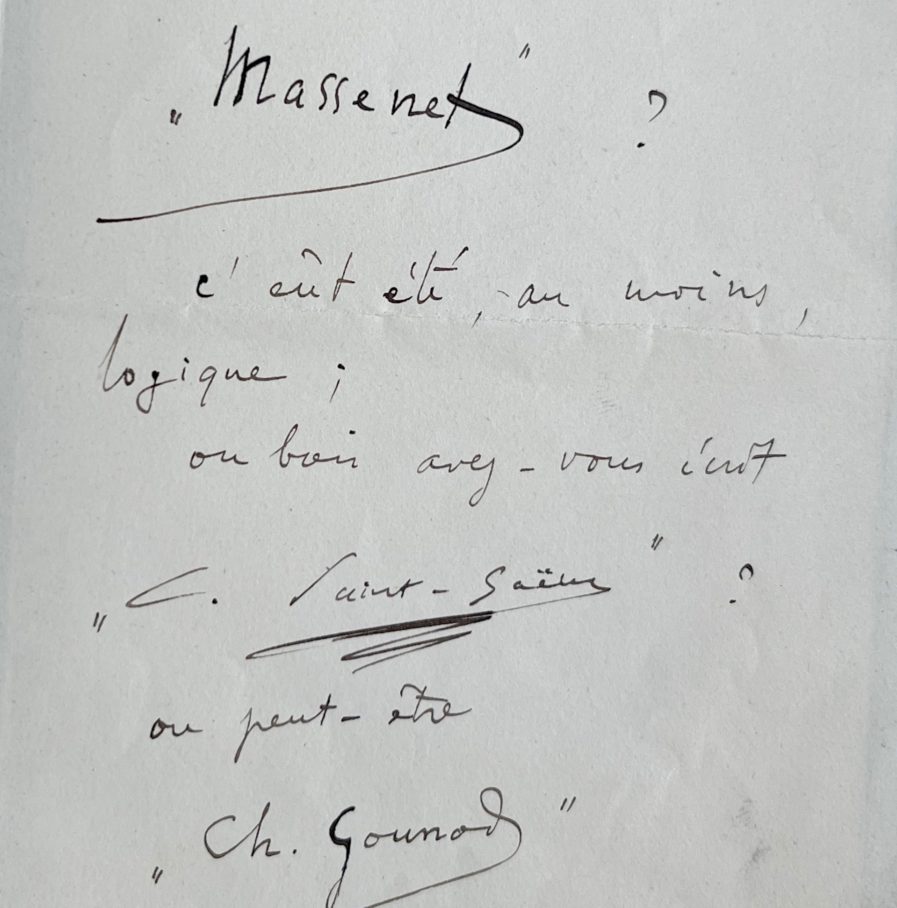 „Massenet" ?
c'eût été, au moins,
logique ;
ou bien avez-vous écrit
„C. Saint-Saëns" ?
ou peut-être
„Ch. Gounod"